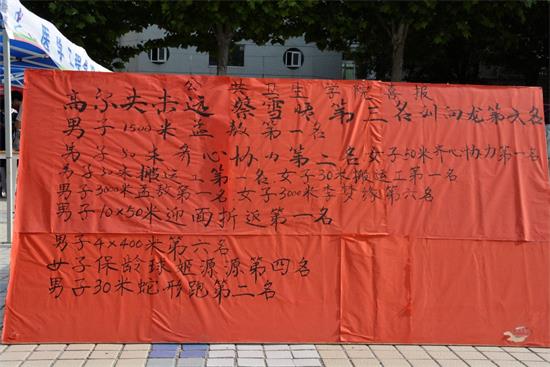 医学工程
公共卫生学院喜报
高尔夫击远 蔡雪晤 第三名 刘向龙第六名
男子1500米孟敖第一名
男子50米齐心协力第二名 女子50米齐心协力第一名
男子30米搬运工第一名 女子30米搬运工第一名
男子3000米孟敖第一名 女子3000米李梦缘第六名
男子10×50米迎面折返第一名
男子4×400米第六名
女子保龄球姬源源第四名
男子30米蛇形跑第二名